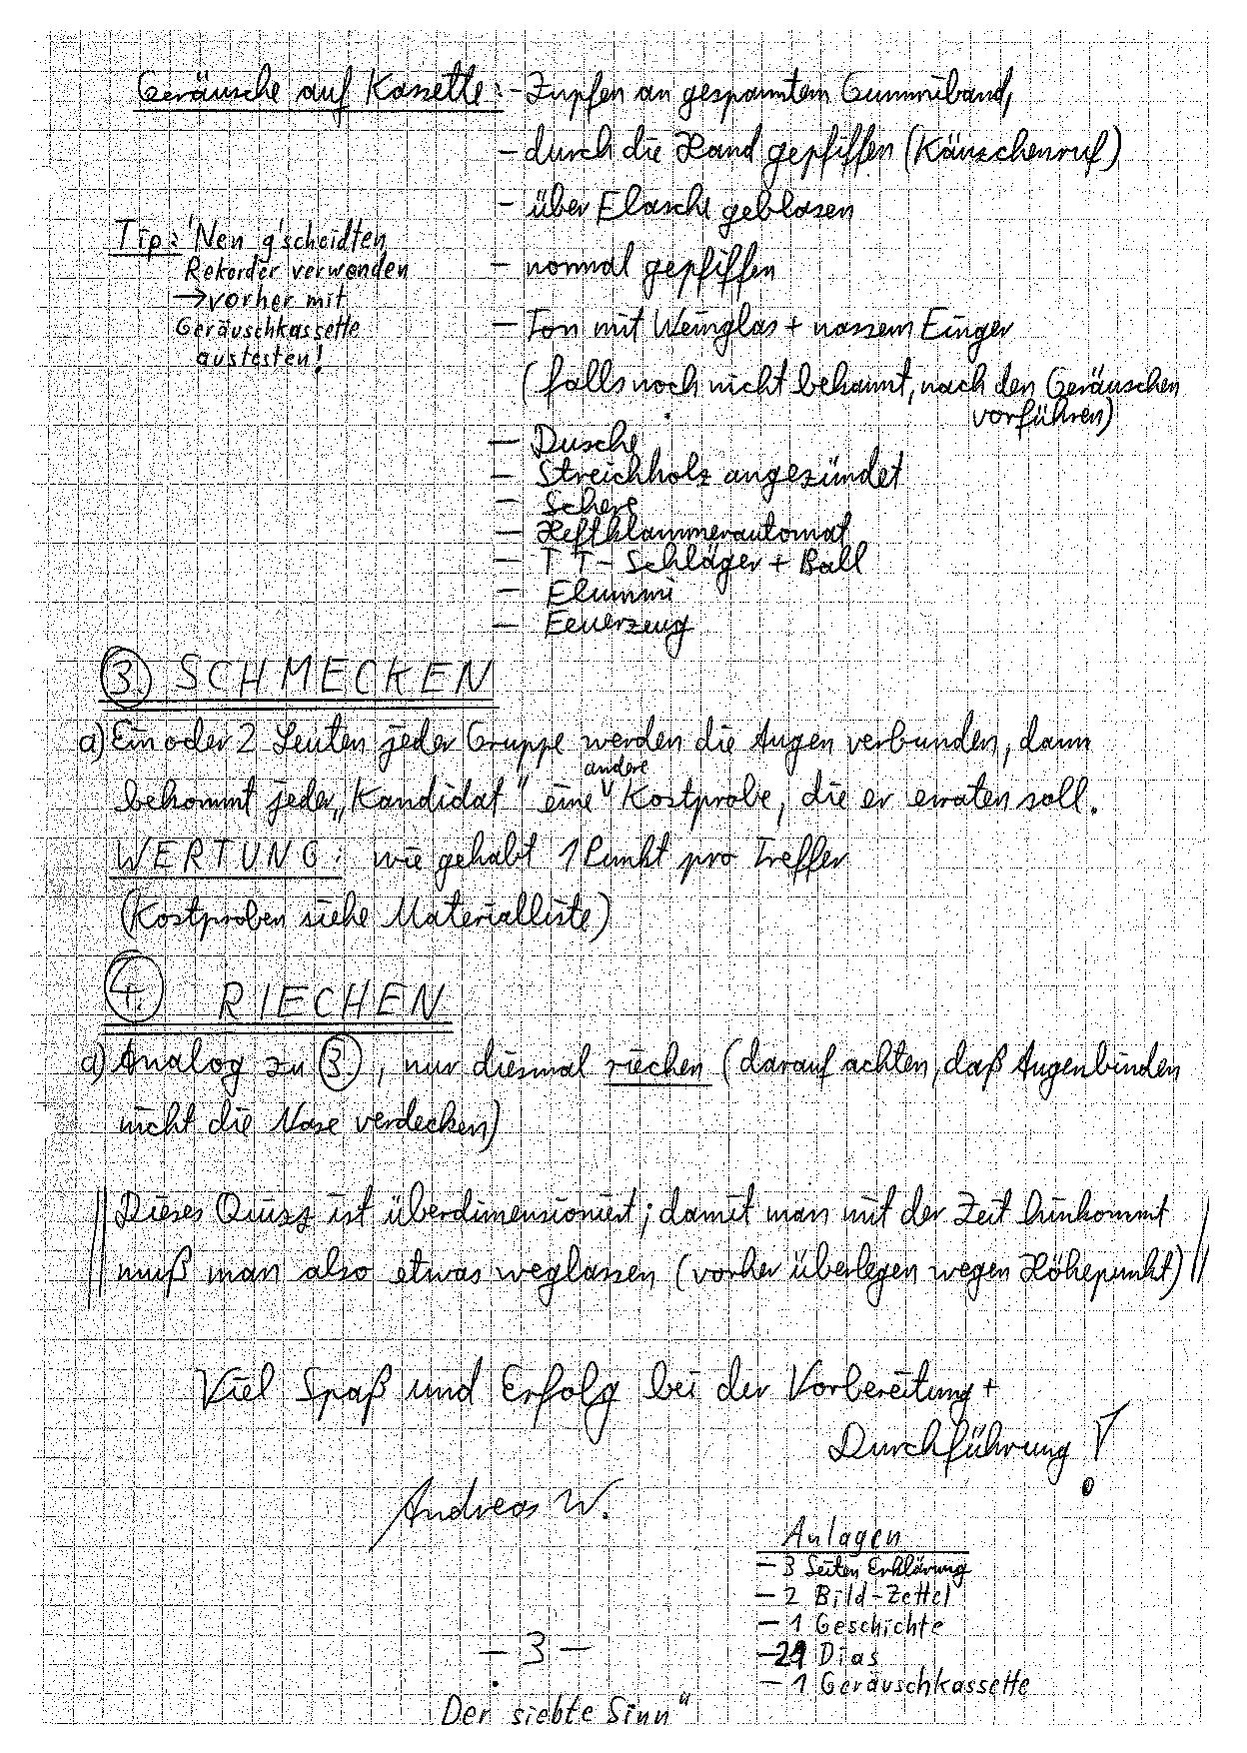 Geräusche auf Kassette: - Zupfen an gespanntem Gummiband,
- durch die Hand gepfiffen (Käuzchenruf)
- über Flasche geblasen
Tip: 'Nen g'scheidten
Rekorder verwenden
→ vorher mit
Geräuschkassette
austesten!
- normal gepfiffen
- Ton mit Weinglas + nassem Finger
(falls noch nicht bekannt, nach den Geräuschen
vorführen)
- Dusche
- Streichholz angezündet
- Schere
- Heftklammerautomat
- TT-Schläger + Ball
- Flummi
- Feuerzeug
3. SCHMECKEN
a) Ein oder 2 Leuten jeder Gruppe werden die Augen verbunden, dann
bekommt jeder „Kandidat" eine andere Kostprobe, die er erraten soll.
WERTUNG: wie gehabt 1 Punkt pro Treffer
(Kostproben siehe Materialliste)
4. RIECHEN
a) Analog zu 3., nur diesmal riechen (darauf achten, daß Augenbinden
nicht die Nase verdecken)
Dieses Quizz ist überdimensioniert; damit man mit der Zeit hinkommt
muß man also etwas weglassen (vorher überlegen wegen Höhepunkt)
Viel Spaß und Erfolg bei der Vorbereitung +
Durchführung!
Andreas W.
Anlagen
- 3 Seiten Erklärung
- 2 Bild-Zettel
- 1 Geschichte
- 21 Dias
- 1 Geräuschkassette
- 3 -
„Der siebte Sinn"